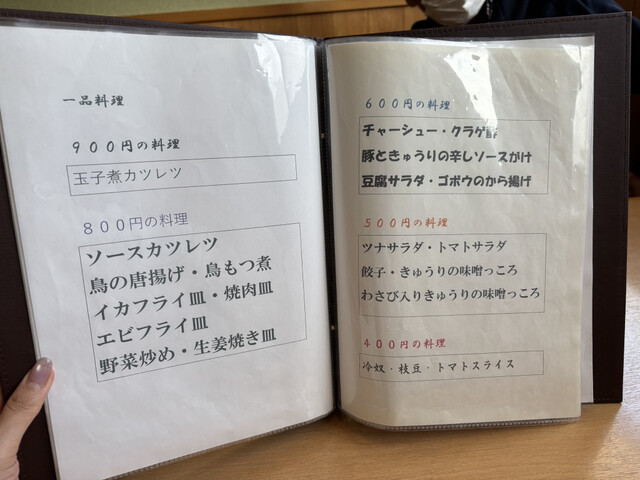 一品料理
９００円の料理
玉子煮カツレツ
８００円の料理
ソースカツレツ
鳥の唐揚げ・鳥もつ煮
イカフライ皿・焼肉皿
エビフライ皿
野菜炒め・生姜焼き皿
６００円の料理
チャーシュー・クラゲ酢
豚ときゅうりの辛しソースがけ
豆腐サラダ・ゴボウのから揚げ
５００円の料理
ツナサラダ・トマトサラダ
餃子・きゅうりの味噌っころ
わさび入りきゅうりの味噌っころ
４００円の料理
冷奴・枝豆・トマトスライス